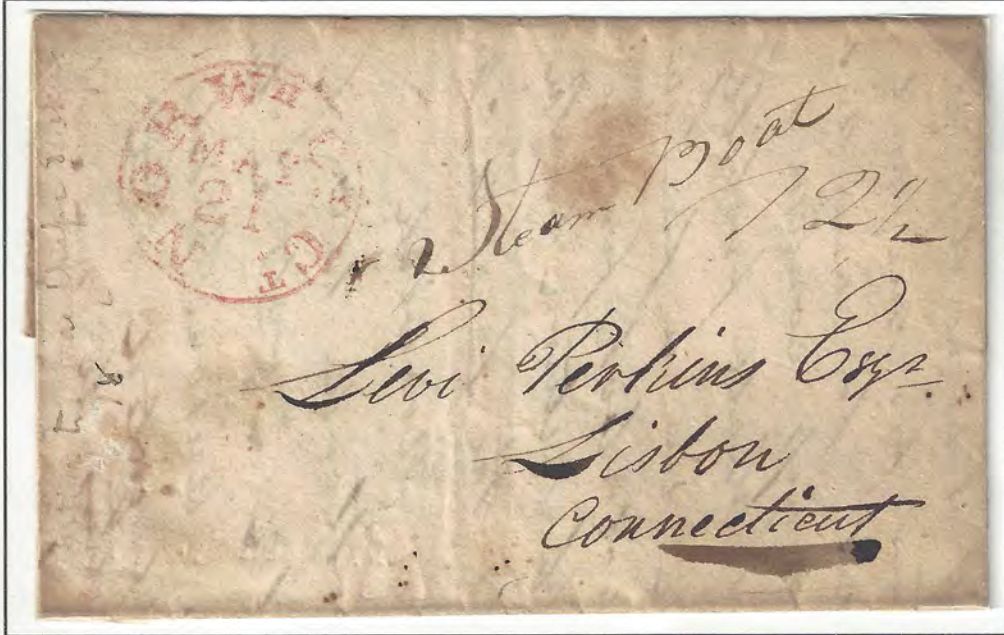 NORWICH CT
MAR
21
Steam Boat
12½
Levi Perkins Esqr.
Lisbon
Connecticut